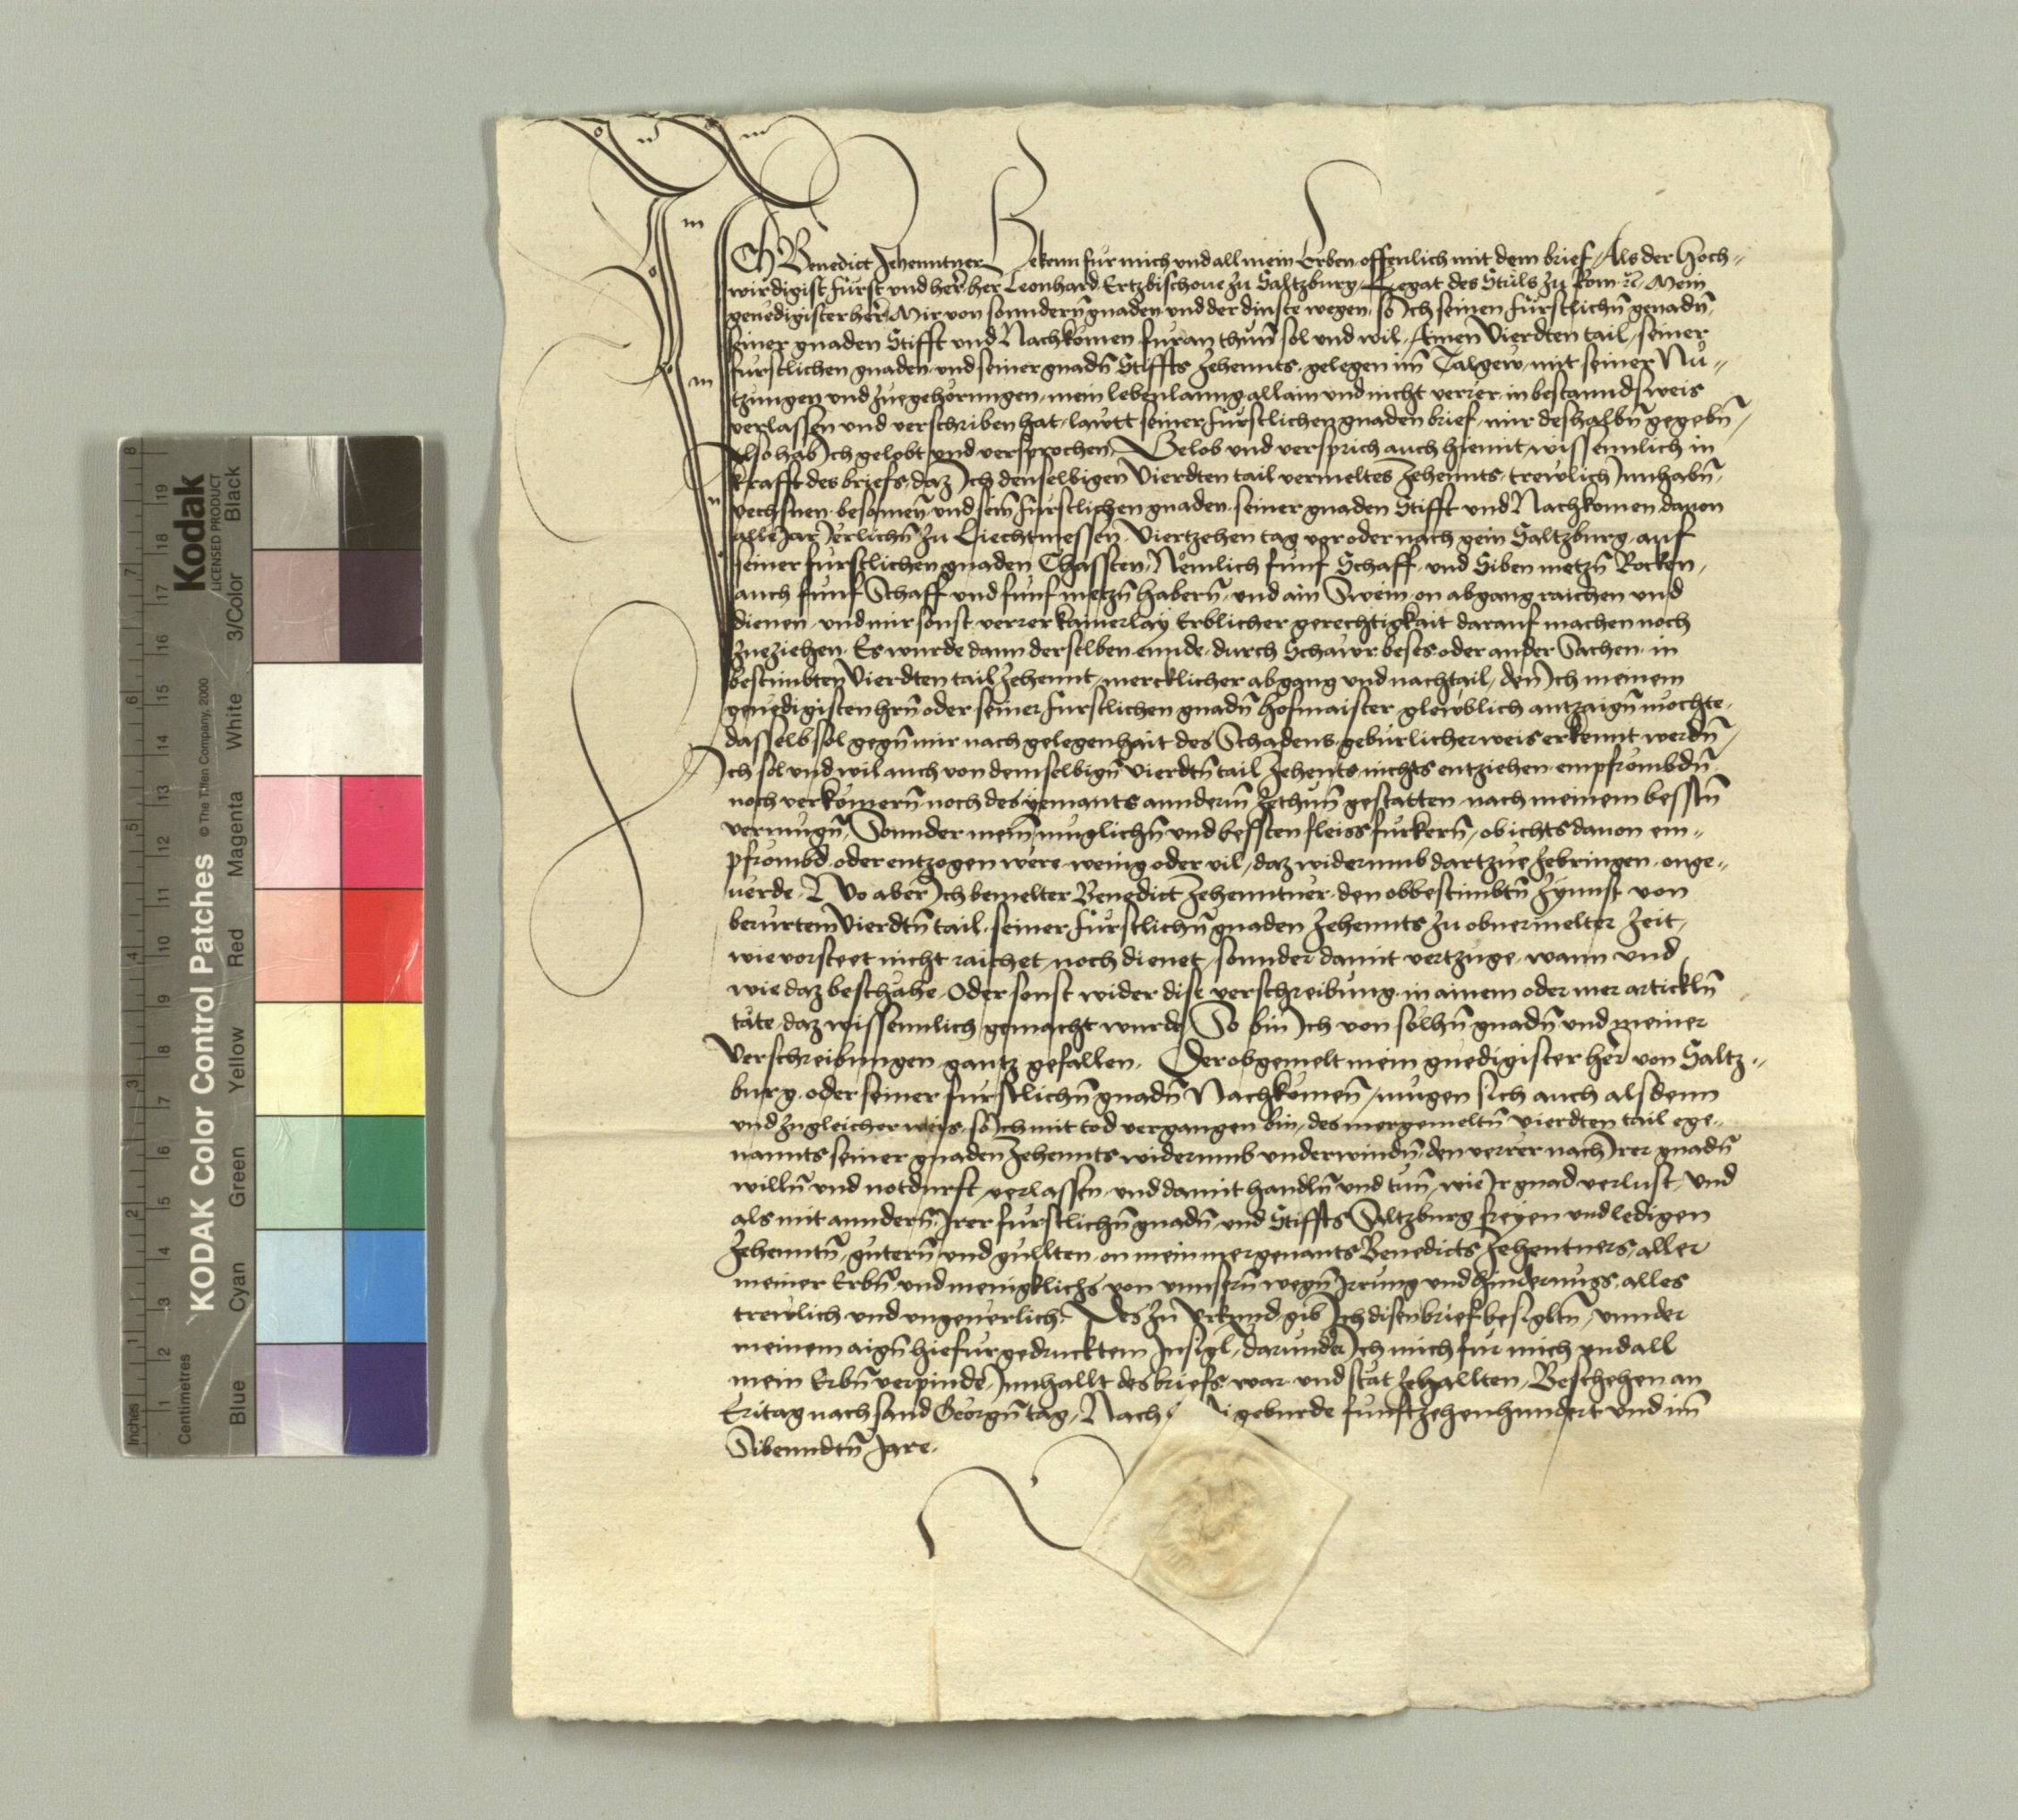 Ich Benedict Zehenntner Bekenn fur mich und all mein Erben offenlich mit dem brief, Als der Hoch„
wirdigist furst und her̄ her Leonhard Ertzbischoue zu Saltzburg, Legat des Stůls zu Rom ꝛc. Mein
genedigister her̄ Mir von sonndern̄ gnaden und der dinste wegen, so Ich seinen furstlichn̄ genadn̄,
seiner gnaden Stifft und Nachkomen furan thun̄ sol und wil, Ainen Vierdten tail, seiner
furstlichen gnaden und seiner gnadn̄ Stiffts Zehennts, gelegen im̄ Talgew, mit seiner Nů„
tzungen und zuegehorungen, mein lebenlanng allain und nicht verrer in bestanndsweis
verlassen und verschriben hat, lawtt seiner furstlichen gnaden brief, mir deshalbn̄ gegebn̄,
Also hab Ich gelobt und versprochen, Gelob und versprich auch hiemit wissenntlich in
krafft des briefs, daz Ich denselbigen Vierdten tail vermeltes Zehennts, trewlich Innhabn̄,
vechsnen, besamen̄, und sein̄ furstlichen gnaden, seiner gnaden Stifft und Nachkomen dauon
alle Jar Jerlichn̄ zu Liechtmessen, Viertzehen tag vor oder nach gein Saltzburg, auf
seiner furstlichen gnaden Chassten, Nemlich funf Schaff, und Siben metzn̄ Rocken,
auch funf Schaff und funf metzn̄ habern̄, und ain Swein, on abgang raichen und
dienen, und mir sonst verrer kainerlay Erblicher gerechtigkait darauf machen noch
zueziehen, Es wurde dann derselben ennde, durch Schawr beses oder annder Sachen, in
bestimbten Vierdten tail Zehennt, mercklicher abgang und nachtail, den Ich meinem
genedigisten hrn̄ oder seiner furstlichen gnadn̄ hofmaister glewblich antzaign̄ mochte,
dasselb sol gegn̄ mir nach gelegenhait des Schadens, geburlicherweis erkennt werdn̄,
Ich sol und wil auch von demselbign̄ Vierdtn̄ tail Zehents, nichts entziehen, empfrombdn̄,
noch verkomern̄ noch des yemants annderm̄ zethun̄ gestatten, nach meinem besstn̄
vermugn̄, Sonnder mein̄ muglichn̄ und bessten fleiss furkern̄, ob ichts dauon em„
pfrombd, oder entzogen were, wenig oder vil, daz widerumb dartzue zebringen, onge„
uerde. Wo aber Ich bemelter Benedict Zehenntner, den obbestimbtn̄ Zynnst, von
berurtem Vierdtn̄ tail, seiner furstlichn̄ gnaden Zehennts, zu obuermelter Zeit,
wie vorsteet nicht raichet, noch dienet, sonnder damit vertzuge, wann und
wie daz beschahe, Oder sonst wider dise verschreibung, in ainem oder mer artickln̄
tate, daz wissenntlich gemacht wurde, So bin Ich von solhn̄ gnadn̄ und meiner
Verschreibungen gantz gefallen, Der obgemelt mein gnedigister her̄ von Saltz„
burg, oder seiner furstlichn̄ gnadn̄ Nachkomen̄, mugen sich auch alsdenn
und zugleicherweis, so Ich mit tod vergangen bin, des mergemeltn̄ vierdten tail ege„
nannts seiner gnaden Zehennts widerumb underwindn̄, den verrer nach Irer gnadn̄
willn̄ und notdurft, verlassen, und damit handln̄ und tun̄, wie Ir gnad verlust, Und
als mit anndern̄, Irer furstlichn̄ gnadn̄ und Stiffts Saltzburg freyen und ledigen
Zehenntn̄, gutern̄, und gullten, on mein mergenants Benedicts Zehentners, aller
meiner Erbn̄ und menigklichs von unnsern̄ wegn̄ Irrung und hindernuss, alles
trewlich und ungeuerlich, Des zu Urkund, gib Ich disen brief besigltn̄, unnder
meinem aign̄ hiefurgedrucktem Insigl, darunder Ich mich fur mich und all
mein Erbn̄ verpinde, Innhallt des briefs, war und stat zehallten, Beschehen an
Eritag nach sand Georgn̄ tag, Nach geburde funftzehenhundert und im̄
Sibenndtn̄ Jare.
KODAK Color Control Patches
Kodak
LICENSED PRODUCT
© The Tiffen Company, 2000
Blue Cyan Green Yellow Red Magenta White 3/Color Black
Inches 1 2 3 4 5 6 7 8
Centimetres 1 2 3 4 5 6 7 8 9 10 11 12 13 14 15 16 17 18 19